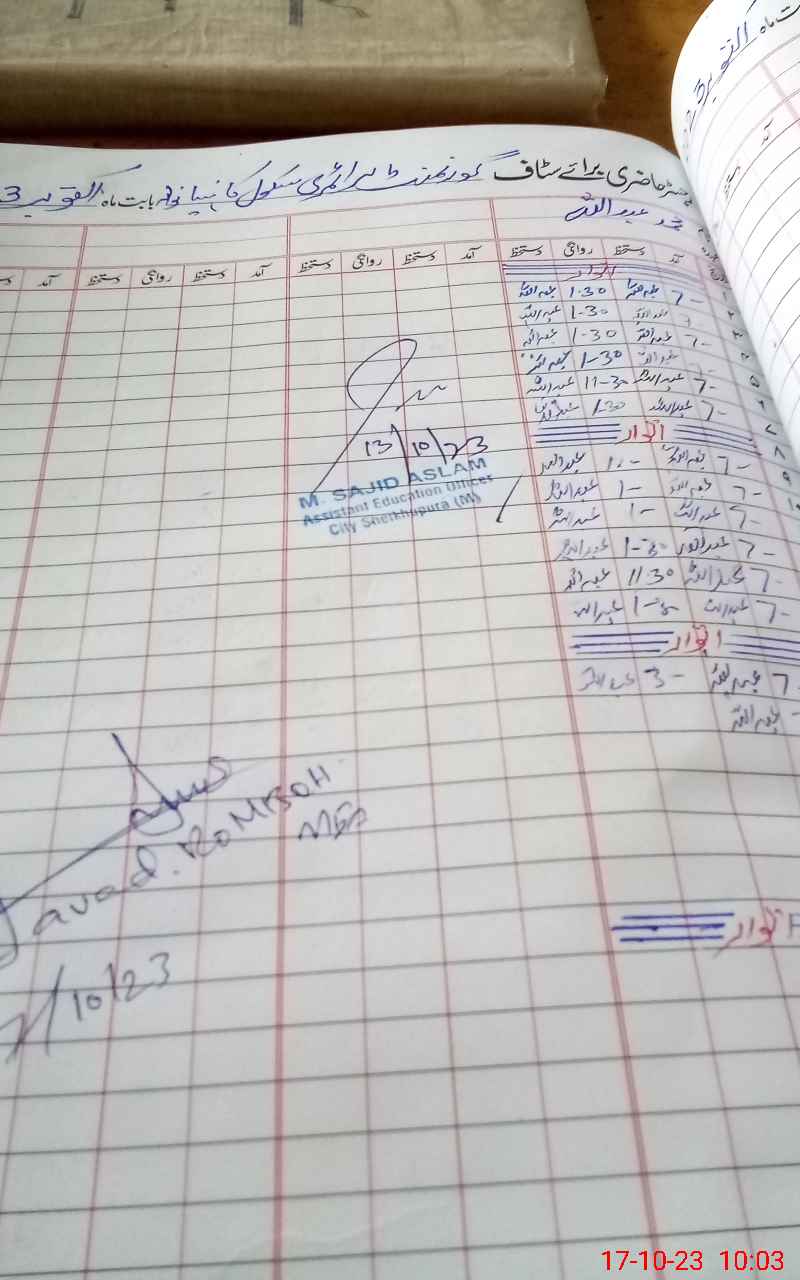 رجسٹر حاضری برائے سٹاف گورنمنٹ پرائمری سکول بابت ماہ اکتوبر 3
محمد عبداللہ
آمد دستخط روانگی دستخط آمد دستخط روانگی دستخط آمد دستخط روانگی دستخط آمد
اتوار
7- عبداللہ 1-30 عبداللہ
عبداللہ 1-30 عبداللہ
7- عبداللہ 1-30 عبداللہ
عبداللہ 1-30 عبداللہ
7- عبداللہ 11-30 عبداللہ
7- عبداللہ 1-30 عبداللہ
اتوار
7- عبداللہ عبداللہ
7- عبداللہ 1- عبداللہ
7- عبداللہ 1- عبداللہ
7- عبداللہ 1-30 عبداللہ
7- عبداللہ 11-30 عبداللہ
7- عبداللہ عبداللہ
اتوار
7- عبداللہ 3- عبداللہ
عبداللہ
اتوار
13/10/23
M. SAJID ASLAM
Assistant Education Officer
City Sheikhupura (M)
Javad.
/10/23
17-10-23 10:03